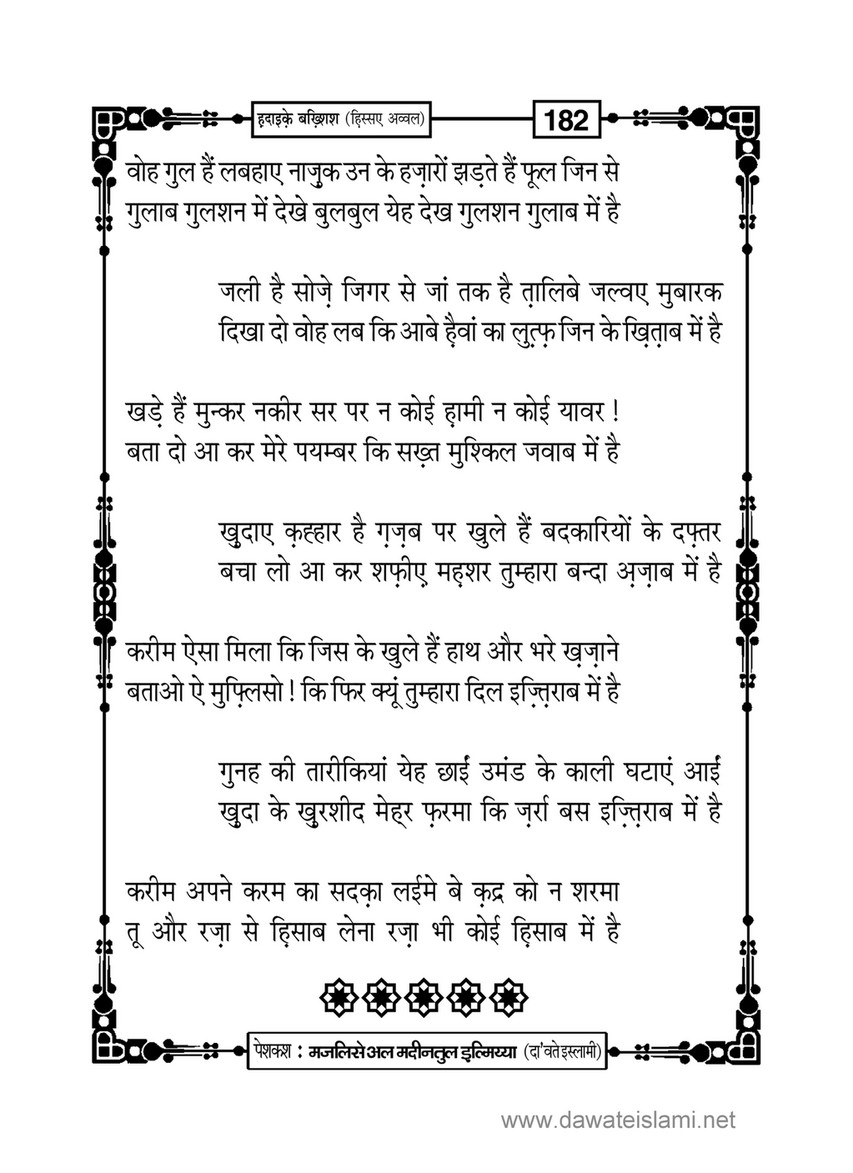 ह़दाइक़े बख़्शिश (हि़स्सए अव्वल)
182
वोह गुल हैं लबहाए नाज़ुक उन के हज़ारों झड़ते हैं फूल जिन से
गुलाब गुलशन में देखे बुलबुल येह देख गुलशन गुलाब में है
जली है सोज़े जिगर से जां तक है त़ालिबे जल्वए मुबारक
दिखा दो वोह लब कि आबे ह़ैवां का लुत़्फ़ जिन के ख़ित़ाब में है
खड़े हैं मुन्कर नकीर सर पर न कोई ह़ामी न कोई यावर !
बता दो आ कर मेरे पयम्बर कि सख़्त मुश्किल जवाब में है
ख़ुदाए क़ह्हार है ग़ज़ब पर खुले हैं बदकारियों के दफ़्तर
बचा लो आ कर शफ़ीए़ मह़शर तुम्हारा बन्दा अ़ज़ाब में है
करीम ऐसा मिला कि जिस के खुले हैं हाथ और भरे ख़ज़ाने
बताओ ऐ मुफ़्लिसो ! कि फिर क्यूं तुम्हारा दिल इज़्त़िराब में है
गुनह की तारीकियां येह छाईं उमंड के काली घटाएं आईं
ख़ुदा के ख़ुरशीद मेह्र फ़रमा कि ज़र्रा बस इज़्त़िराब में है
करीम अपने करम का सदक़ा लईमे बे क़द्र को न शरमा
तू और रज़ा से ह़िसाब लेना रज़ा भी कोई ह़िसाब में है
पेशकश : मजलिसे अल मदीनतुल इ़ल्मिय्या (दा'वते इस्लामी)
www.dawateislami.net